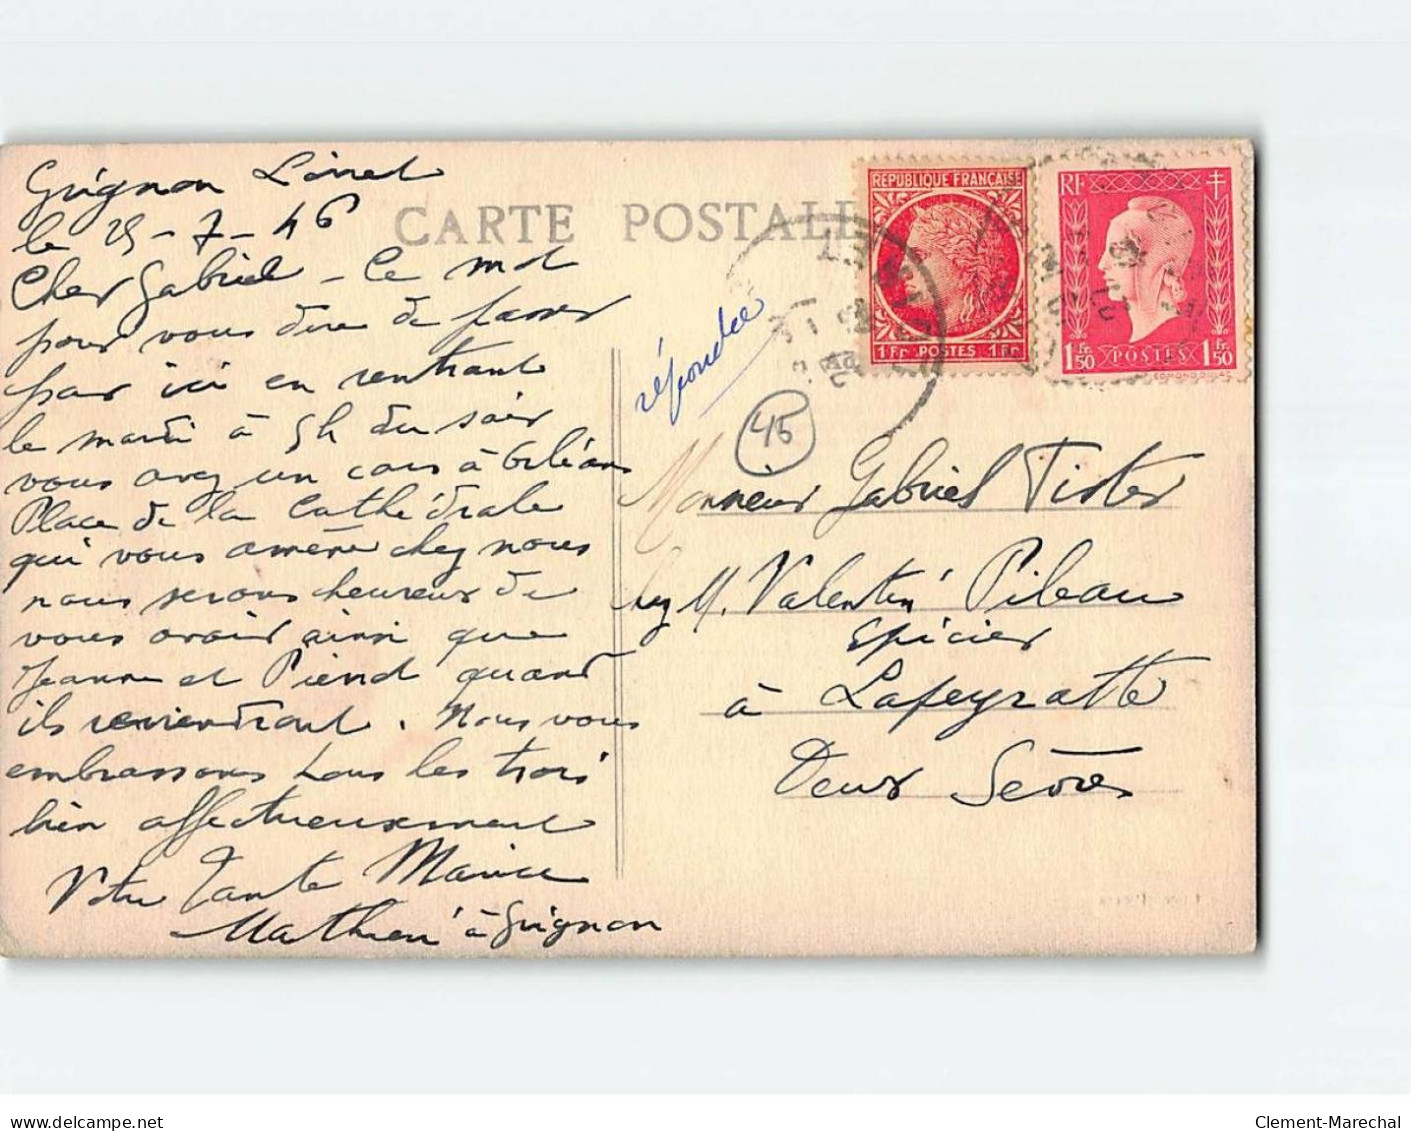 Grignon Loiret
le 25-7-46
Cher Gabriel - Ce mot
pour vous dire de passer
par ici en rentrant
le mardi à 5h du soir
vous avez un cars à Orléans
Place de la Cathédrale
qui vous amène chez nous
nous serons heureux de
vous avoir ainsi que
Jeanne et quand
ils reviendront. Nous vous
embrassons tous les trois
bien affectueusement
Votre Tante Marie
Mathieu à Grignon
CARTE POSTALE
répondue
45
RÉPUBLIQUE FRANÇAISE
1Fr POSTES 1Fr
RF
1Fr.50 POSTES 1Fr.50
Monsieur Gabriel Tister
chez M. Valentin Pibeau
Epicier
à Lafeyratte
Deux Sèvres
Clement-Marechal
delcampe.net